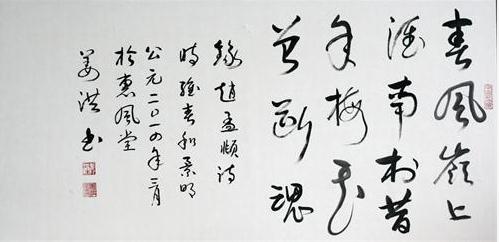 春風嶺上
淮南村昔
年梅花
曾斷魂
錄趙孟頫詩
時維春和景明
公元二〇一四年三月
於惠風堂
姜洪書